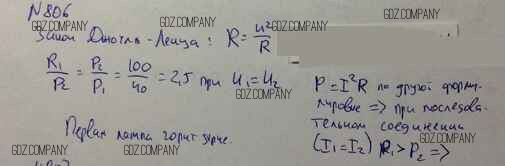 N 806
GDZ.COMPANY
GDZ.COMPANY
GDZ.COMPANY
Закон Джоуля-Ленца: R = u²/R
R₁/P₂ = P₂/P₁ = 100/40 = 2,5 при U₁ = U₂
GDZ.COMPANY
GDZ.COMPANY
P = I²R по другой форму-
лировке => при последова-
тельном соединении
(I₁ = I₂) R₁ > P₂ =>
Первая лампа горит ярче.
GDZ.COMPANY
GDZ.COMPANY
GDZ.COMPANY